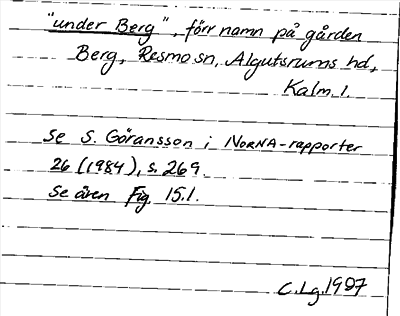 "under Berg", förr namn på gården
Berg, Resmo sn, Algutsrums hd,
Kalm. l.
Se S. Göransson i NORNA-rapporter
26 (1984), s. 269.
Se även Fig. 15.1.
C.Lg. 1987